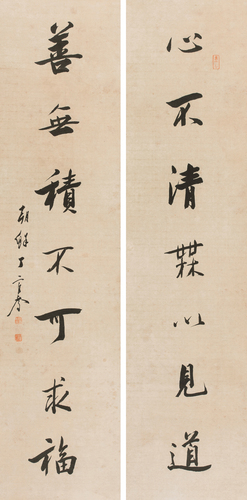 心不清無以見道
善無積不可求福
朝鮮丁